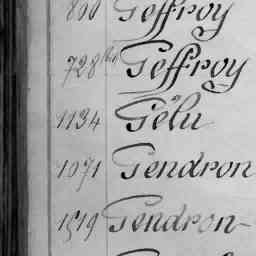 800 Geffroy
728 bis Geffroy
1134 Gélu
1071 Gendron
1519 Gendron-